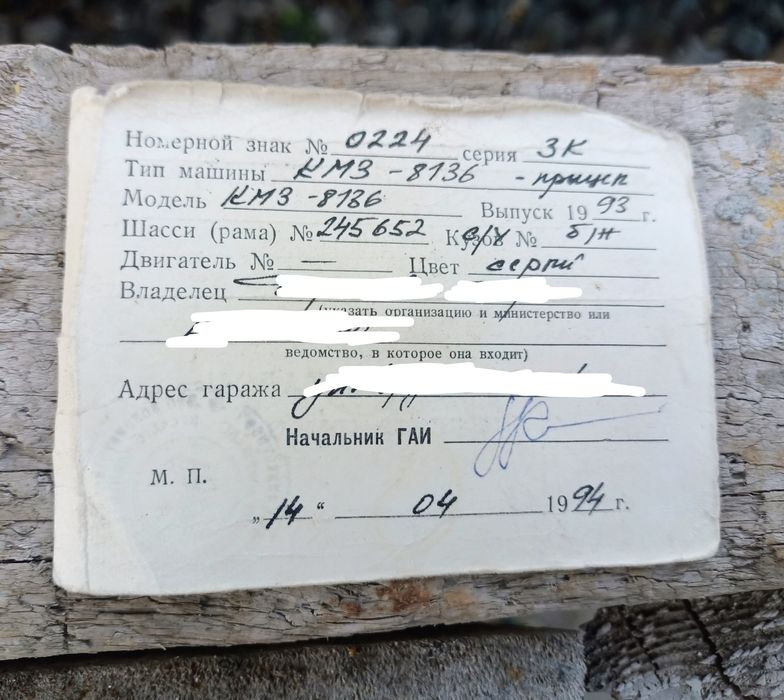 Номерной знак № 0224 серия ЗК
Тип машины КМЗ-8136 - прицеп
Модель КМЗ-8136 Выпуск 1993 г.
Шасси (рама) № 245652 Кузов № б/н
Двигатель № — Цвет серый
Владелец
(указать организацию и министерство или
ведомство, в которое она входит)
Адрес гаража
Начальник ГАИ
М. П.
„14“ 04 1994 г.